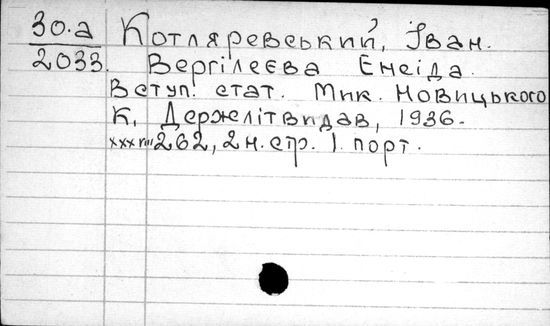 30.a Котляревський, Іван.
2033. Вергілєєва Енеіда.
Вступ. стат. Мик. Новицького
К, Держлітвидав, 1936.
xxxviii 262, 2 н. стр. 1 порт.